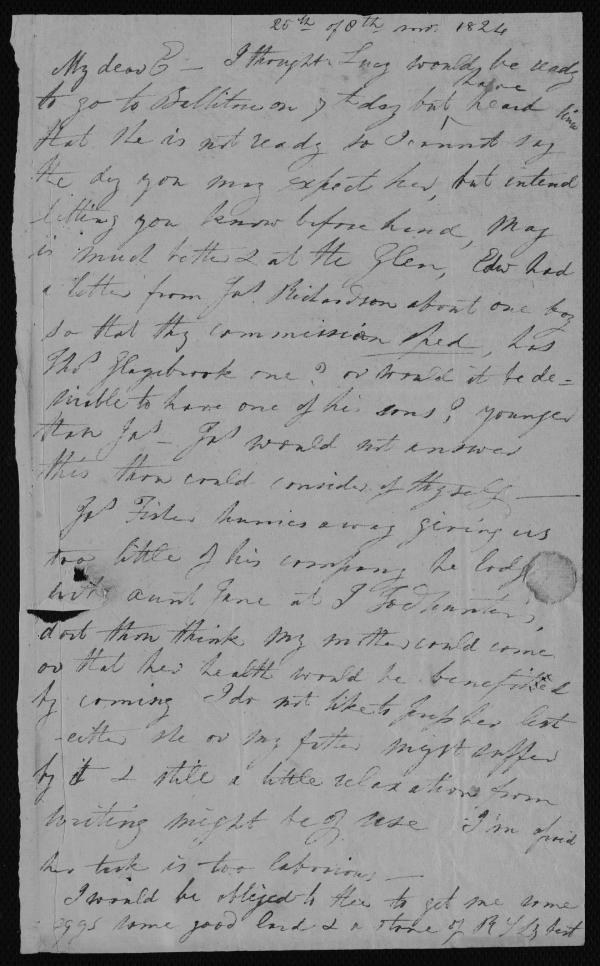 25th of 8th mo. 1824
My dear E — I thought Lucy would be ready
to go to Ballitore on 7th day but have heard since
that she is not ready so I cannot say
the day you may expect her, but intend
letting you know before hand, May
is much better & at the Glen, Edwd had
a letter from Jas Richardson about one boy
so that thy commission sped, has
Thos Glazebrook one? or would it be de=
sirable to have one of his sons? younger
than Jas — Jas would not answer
this thou could consider of thyself —
Jas Fisher hurries away giving us
too little of his company he lodges
with aunt Jane at J Todhunter's,
dost thou think my mother could come
or that her health would be benefitted
by coming I do not like to press her lest
either she or my father might suffer
by it & still a little relaxation from
writing might be of use I'm afraid
her task is too laborious —
I would be obliged to thee to get me some
eggs some good lard & a stone of best